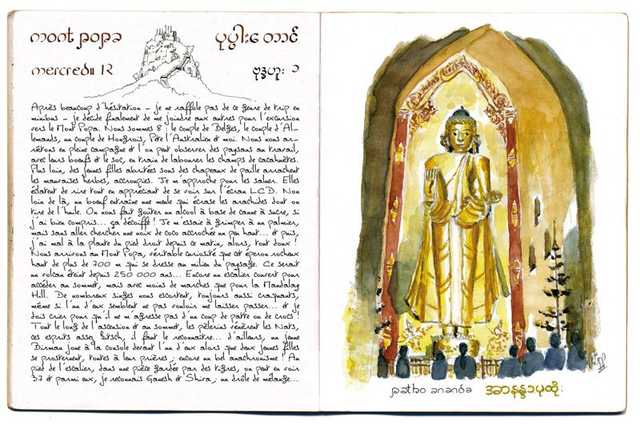 mont popa
mercredi 12
Après beaucoup d'hésitation - je ne raffole pas de ce genre de trip en
minibus - je décide finalement de me joindre aux autres pour l'excursion
vers le Mont Popa. Nous sommes 8 : le couple de Belges, le couple d'Al-
lemands, un couple de Hongrois, Pete l'Australien et moi. Nous nous ar-
rêtons en pleine campagne et l'on peut observer des paysans au travail,
avec leurs boeufs et le soc, en train de labourer les champs de cacahuètes.
Plus loin, des jeunes filles abritées sous des chapeaux de paille arrachent
les mauvaises herbes, accroupies. Je m'approche pour les saluer. Elles
éclatent de rire tout en appréciant de se voir sur l'écran LCD. Non
loin de là, un boeuf entraîne une mode qui écrase les arachides dont on
tire de l'huile. On nous fait goûter un alcool à base de canne à sucre, si
j'ai bien compris... ça décoiffe ! Je m'essaie à grimper à un palmier,
mais sans aller chercher une noix de coco accrochée un peu haut... et puis,
j'ai mal à la plante du pied droit depuis ce matin, alors, tout doux !
Nous arrivons au Mont Popa, véritable curiosité que cet éperon rocheux
haut de plus de 700 m qui se dresse au milieu du paysage. Ce serait
un volcan éteint depuis 250 000 ans... Encore un escalier couvert pour
accéder au sommet, mais avec moins de marches que pour la Mandalay
Hill. De nombreux singes nous escortent, toujours aussi craquants,
même si l'un d'eux semblent ne pas vouloir me laisser passer... et je
dois crier pour qu'il ne m'agresse pas d'un coup de patte ou de crocs !
Tout le long de l'ascension et au sommet, les pèlerins vénèrent les Nats,
ces esprits assez kitsch, il faut le reconnaître... d'ailleurs, un jeune
Birman joue à la console devant l'un d'eux alors que deux jeunes filles
se prosternent, toutes à leur prières ; encore un bel anachronisme ! Au
pied de l'escalier, dans une pièce gardée par des tigres, on peut en voir
37 et parmi eux, je reconnais Ganesh et Shiva ; un drôle de mélange...
patho ananda အာနန္ဒာပုထိုး